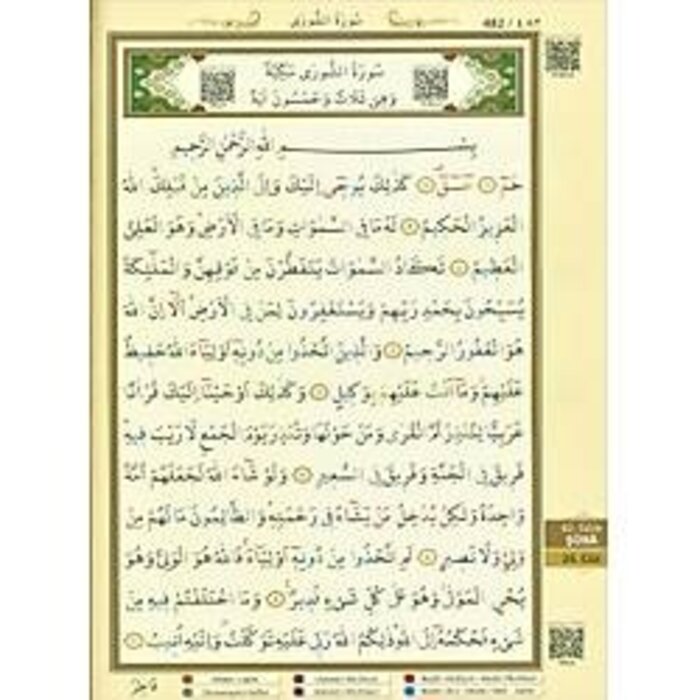 سُورَةُ الشُّورٰى
سُورَةُ الشُّورٰى مَكِّيَّةٌ
وَهِيَ ثَلَاثٌ وَخَمْسُونَ اٰيَةً
بِسْمِ اللّٰهِ الرَّحْمٰنِ الرَّحِيمِ
حٰمٓ عٓسٓقٓ كَذٰلِكَ يُوحٰٓى اِلَيْكَ وَاِلَى الَّذِينَ مِنْ قَبْلِكَ اللّٰهُ
الْعَزِيزُ الْحَكِيمُ لَهُ مَا فِى السَّمٰوَاتِ وَمَا فِى الْاَرْضِ وَهُوَ الْعَلِىُّ
الْعَظِيمُ تَكَادُ السَّمٰوَاتُ يَتَفَطَّرْنَ مِنْ فَوْقِهِنَّ وَالْمَلٰٓئِكَةُ
يُسَبِّحُونَ بِحَمْدِ رَبِّهِمْ وَيَسْتَغْفِرُونَ لِمَنْ فِى الْاَرْضِ اَلَٓا اِنَّ اللّٰهَ
هُوَ الْغَفُورُ الرَّحِيمُ وَالَّذِينَ اتَّخَذُوا مِنْ دُونِهِٓ اَوْلِيَٓاءَ اللّٰهُ حَفِيظٌ
عَلَيْهِمْ وَمَٓا اَنْتَ عَلَيْهِمْ بِوَكِيلٍ وَكَذٰلِكَ اَوْحَيْنَٓا اِلَيْكَ قُرْاٰنًا
عَرَبِيًّا لِتُنْذِرَ اُمَّ الْقُرٰى وَمَنْ حَوْلَهَا وَتُنْذِرَ يَوْمَ الْجَمْعِ لَا رَيْبَ فِيهِ
فَرِيقٌ فِى الْجَنَّةِ وَفَرِيقٌ فِى السَّعِيرِ وَلَوْ شَٓاءَ اللّٰهُ لَجَعَلَهُمْ اُمَّةً
وَاحِدَةً وَلٰكِنْ يُدْخِلُ مَنْ يَشَٓاءُ فِى رَحْمَتِهِ وَالظَّالِمُونَ مَا لَهُمْ مِنْ
وَلِىٍّ وَلَا نَصِيرٍ اَمِ اتَّخَذُوا مِنْ دُونِهِٓ اَوْلِيَٓاءَ فَاللّٰهُ هُوَ الْوَلِىُّ وَهُوَ
يُحْىِ الْمَوْتٰى وَهُوَ عَلٰى كُلِّ شَىْءٍ قَدِيرٌ وَمَا اخْتَلَفْتُمْ فِيهِ مِنْ
شَىْءٍ فَحُكْمُهُٓ اِلَى اللّٰهِ ذٰلِكُمُ اللّٰهُ رَبِّى عَلَيْهِ تَوَكَّلْتُ وَاِلَيْهِ اُنِيبُ